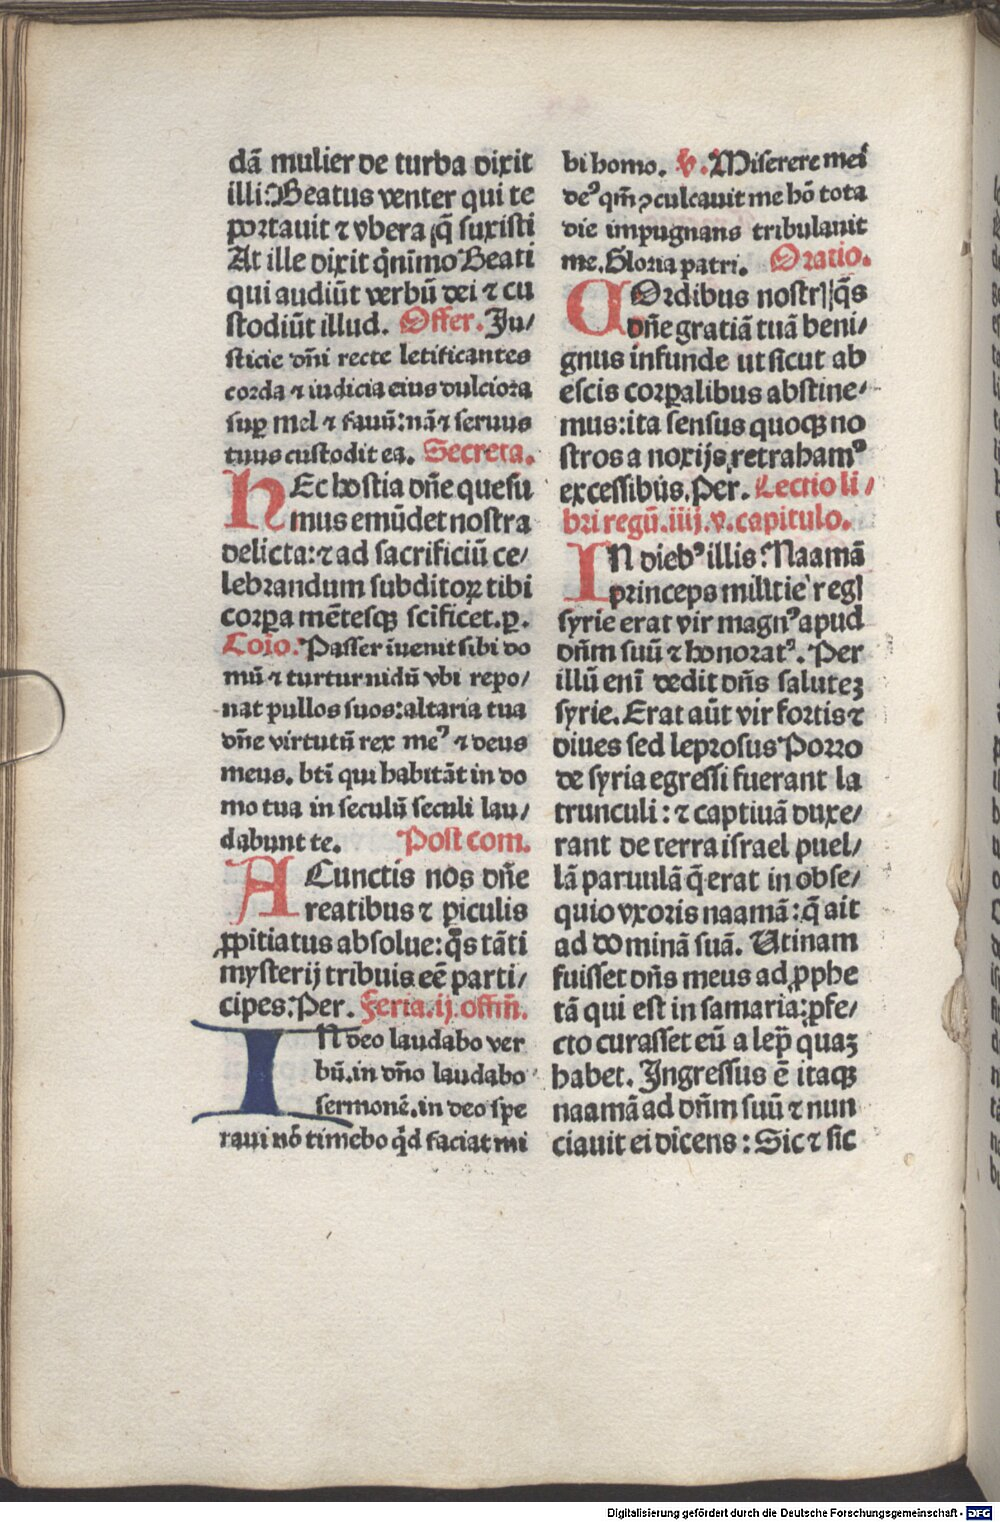 dã mulier de turba dixit
illi: Beatus venter qui te
portauit ⁊ vbera q̄ suxisti
At ille dixit q̄nimo Beati
qui audiūt verbū dei ⁊ cu
stodiūt illud. Offer. Ju/
sticie dñi recte letificantes
corda ⁊ iudicia eius dulciora
suꝑ mel ⁊ fauū: nã ⁊ seruus
tuus custodit ea. Secreta.
HEc hostia dñe quesu
mus emūdet nostra
delicta: ⁊ ad sacrificiū ce/
lebrandum subditoꝝ tibi
corꝑa mētesqꝫ scificet. ꝑ.
Cōio. Passer īuenit sibi do
mū ⁊ turtur nidū vbi repo/
nat pullos suos: altaria tua
dñe virtutū rex me⁹ ⁊ deus
meus. bti qui habitãt in do
mo tua in seculū seculi lau/
dabunt te. Post com.
A Cunctis nos dñe
reatibus ⁊ ꝑiculis
ꝓpitiatus absolue: q̄s tãti
mysterij tribuis eē parti/
cipes. Per. Feria. ij. offm̄.
IN deo laudabo ver
bū. in dño laudabo
sermonē. in deo spe
raui nō timebo q̄d faciat mi
hi homo. v. Miserere mei
de⁹ qm̄ ꝯculcauit me hō tota
die impugnans tribulauit
me. Gloria patri. Oratio.
COrdibus nostrꝭ q̄s
dñe gratiã tuã beni/
gnus infunde ut sicut ab
escis corꝑalibus abstine/
mus: ita sensus quoqꝫ no
stros a noxijs retraham⁹
excessibus. Per. Lectio li/
bri regū. iiij. v. capitulo.
IN dieb⁹ illis: Naamã
princeps militie regꝭ
syrie erat vir magn⁹ apud
dñm suū ⁊ honorat⁹. Per
illū eni dedit dñs saluteꝫ
syrie. Erat aūt vir fortis ⁊
diues sed leprosus Porro
de syria egressi fuerant la
trunculi: ⁊ captiuã duxe/
rant de terra israel puel/
lã paruulã q̄ erat in obse/
quio vxoris naamã: q̄ ait
ad dominã suã. Utinam
fuisset dñs meus ad ꝓphe
tã qui est in samaria: ꝓfe/
cto curasset eū a lep̄ quaꝫ
habet. Ingressus ē itaqꝫ
naamã ad dñm suū ⁊ nun
ciauit ei dicens: Sic ⁊ sic
Digitalisierung gefördert durch die Deutsche Forschungsgemeinschaft - DFG